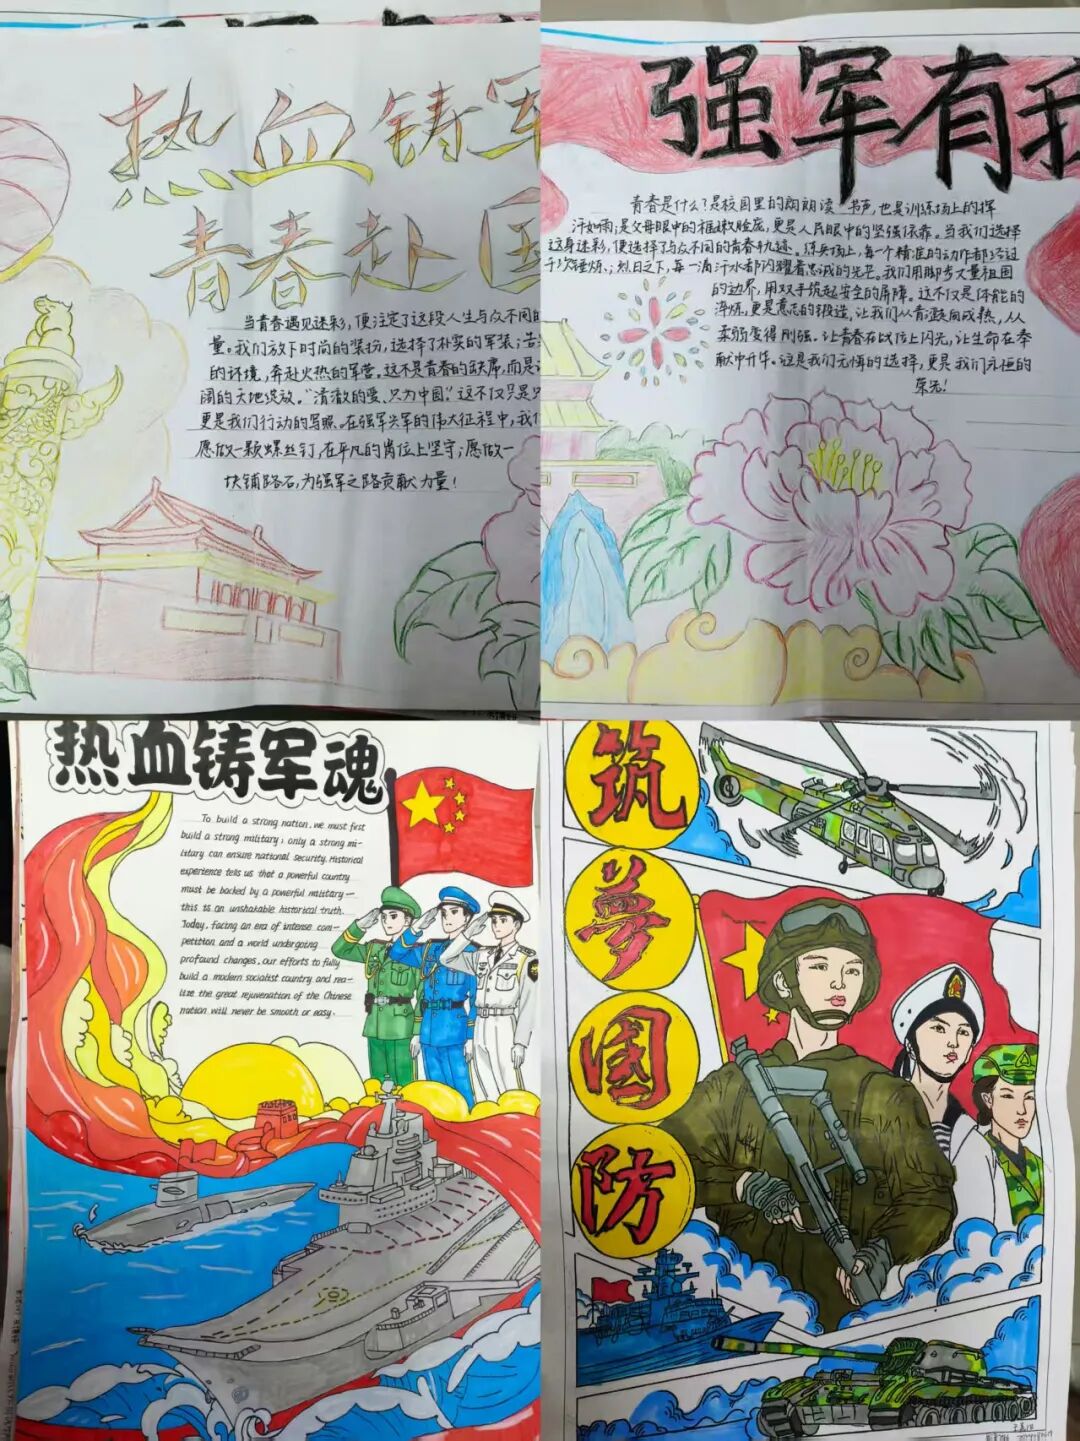 热血铸军
青春赴国
当青春遇见迷彩,便注定了这段人生与众不同的
量。我们放下时尚的装扮,选择了朴实的军装;告
的环境,奔赴火热的军营。这不是青春的缺席,而是
阔的大地绽放。“清澈的爱、只为中国”这不仅只是
更是我们行动的写照。在强军兴军的伟大征程中,我们
愿做一颗螺丝钉,在平凡的岗位上坚守;愿做一
块铺路石,为强军之路贡献力量!
强军有我
青春是什么?是校园里的朗朗读 书声,也是训练场上的挥
汗如雨;是父母眼中的稚嫩脸庞,更是人民眼中的坚强依靠。当我们选择
这身迷彩,便选择了与众不同的青春轨迹。练兵场上,每个精准的动作都经过
千次锤炼,;烈日之下,每一滴汗水都闪耀着忠诚的光芒。我们用脚步丈量祖国
的边界,用双手筑起安全的屏障。这不仅是体能的
淬炼,更是意志的锻造,让我们从青涩走向成熟,从
柔弱变得刚强。让青春在战位上闪光,让生命在奉
献中升华。这是我们无悔的选择,更是我们无悔的
荣光!
热血铸军魂
To build a strong nation, we must first
build a strong military; only a strong mi-
litary can ensure national security. Historical
experience tells us that a powerful country
must be backed by a powerful military—
this is an unshakable historical truth.
Today, facing an era of intense com-
petition and a world undergoing
profound changes, our efforts to fully
build a modern socialist country and rea-
lize the great rejuvenation of the Chinese
nation will never be smooth or easy.
筑
梦
国
防